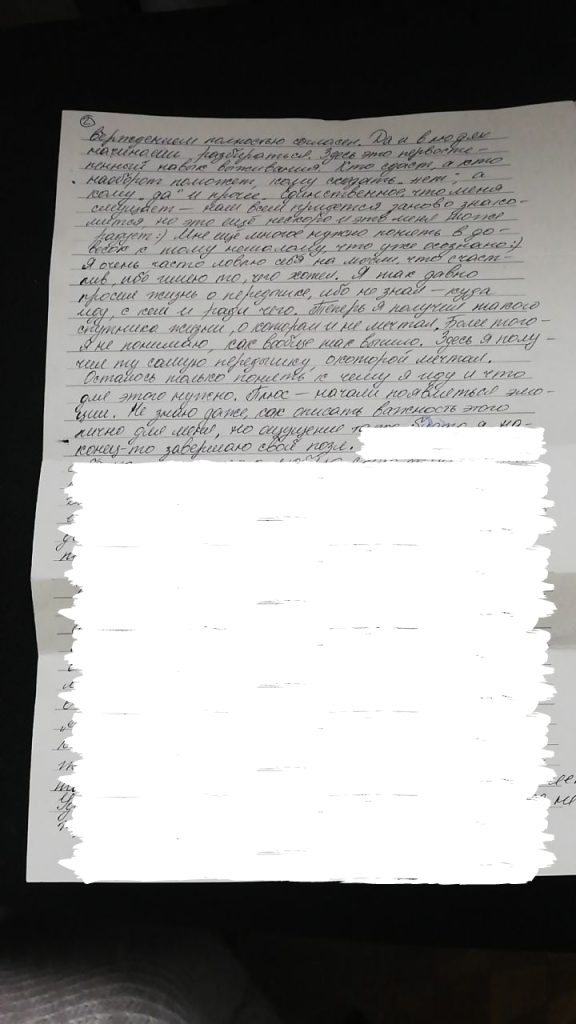 2
верждением полностью согласен. Да и в людях
начинаешь разбираться. Здесь это первосте-
пенный навык выживания. Кто сдаст, а кто
наоборот поможет, кому сказать „нет", а
кому „да" и прочее. Единственное, что меня
смущает — нам всем придется заново знако-
миться, но это ещё нескоро и это меня тоже
радует:) Мне ещё многое нужно понять в до-
весок к тому немалому, что уже осознано:)
Я очень часто ловлю себя на мысли, что счаст-
лив, ибо имею то, что хотел. Я так давно
просил жизнь о передышке, ибо не знал — куда
иду, с кем и ради чего. Теперь я получил такого
спутника жизни, о котором и не мечтал. Более того -
я не понимаю, как вообще так вышло. Здесь я полу-
чил ту самую передышку, о которой мечтал.
Осталось только понять к чему я иду и что
для этого нужно. Плюс — начали появляться эмо-
ции. Не знаю даже, как описать важность этого
лично для меня, но ощущение я на-
конец-то завершаю свой пазл.